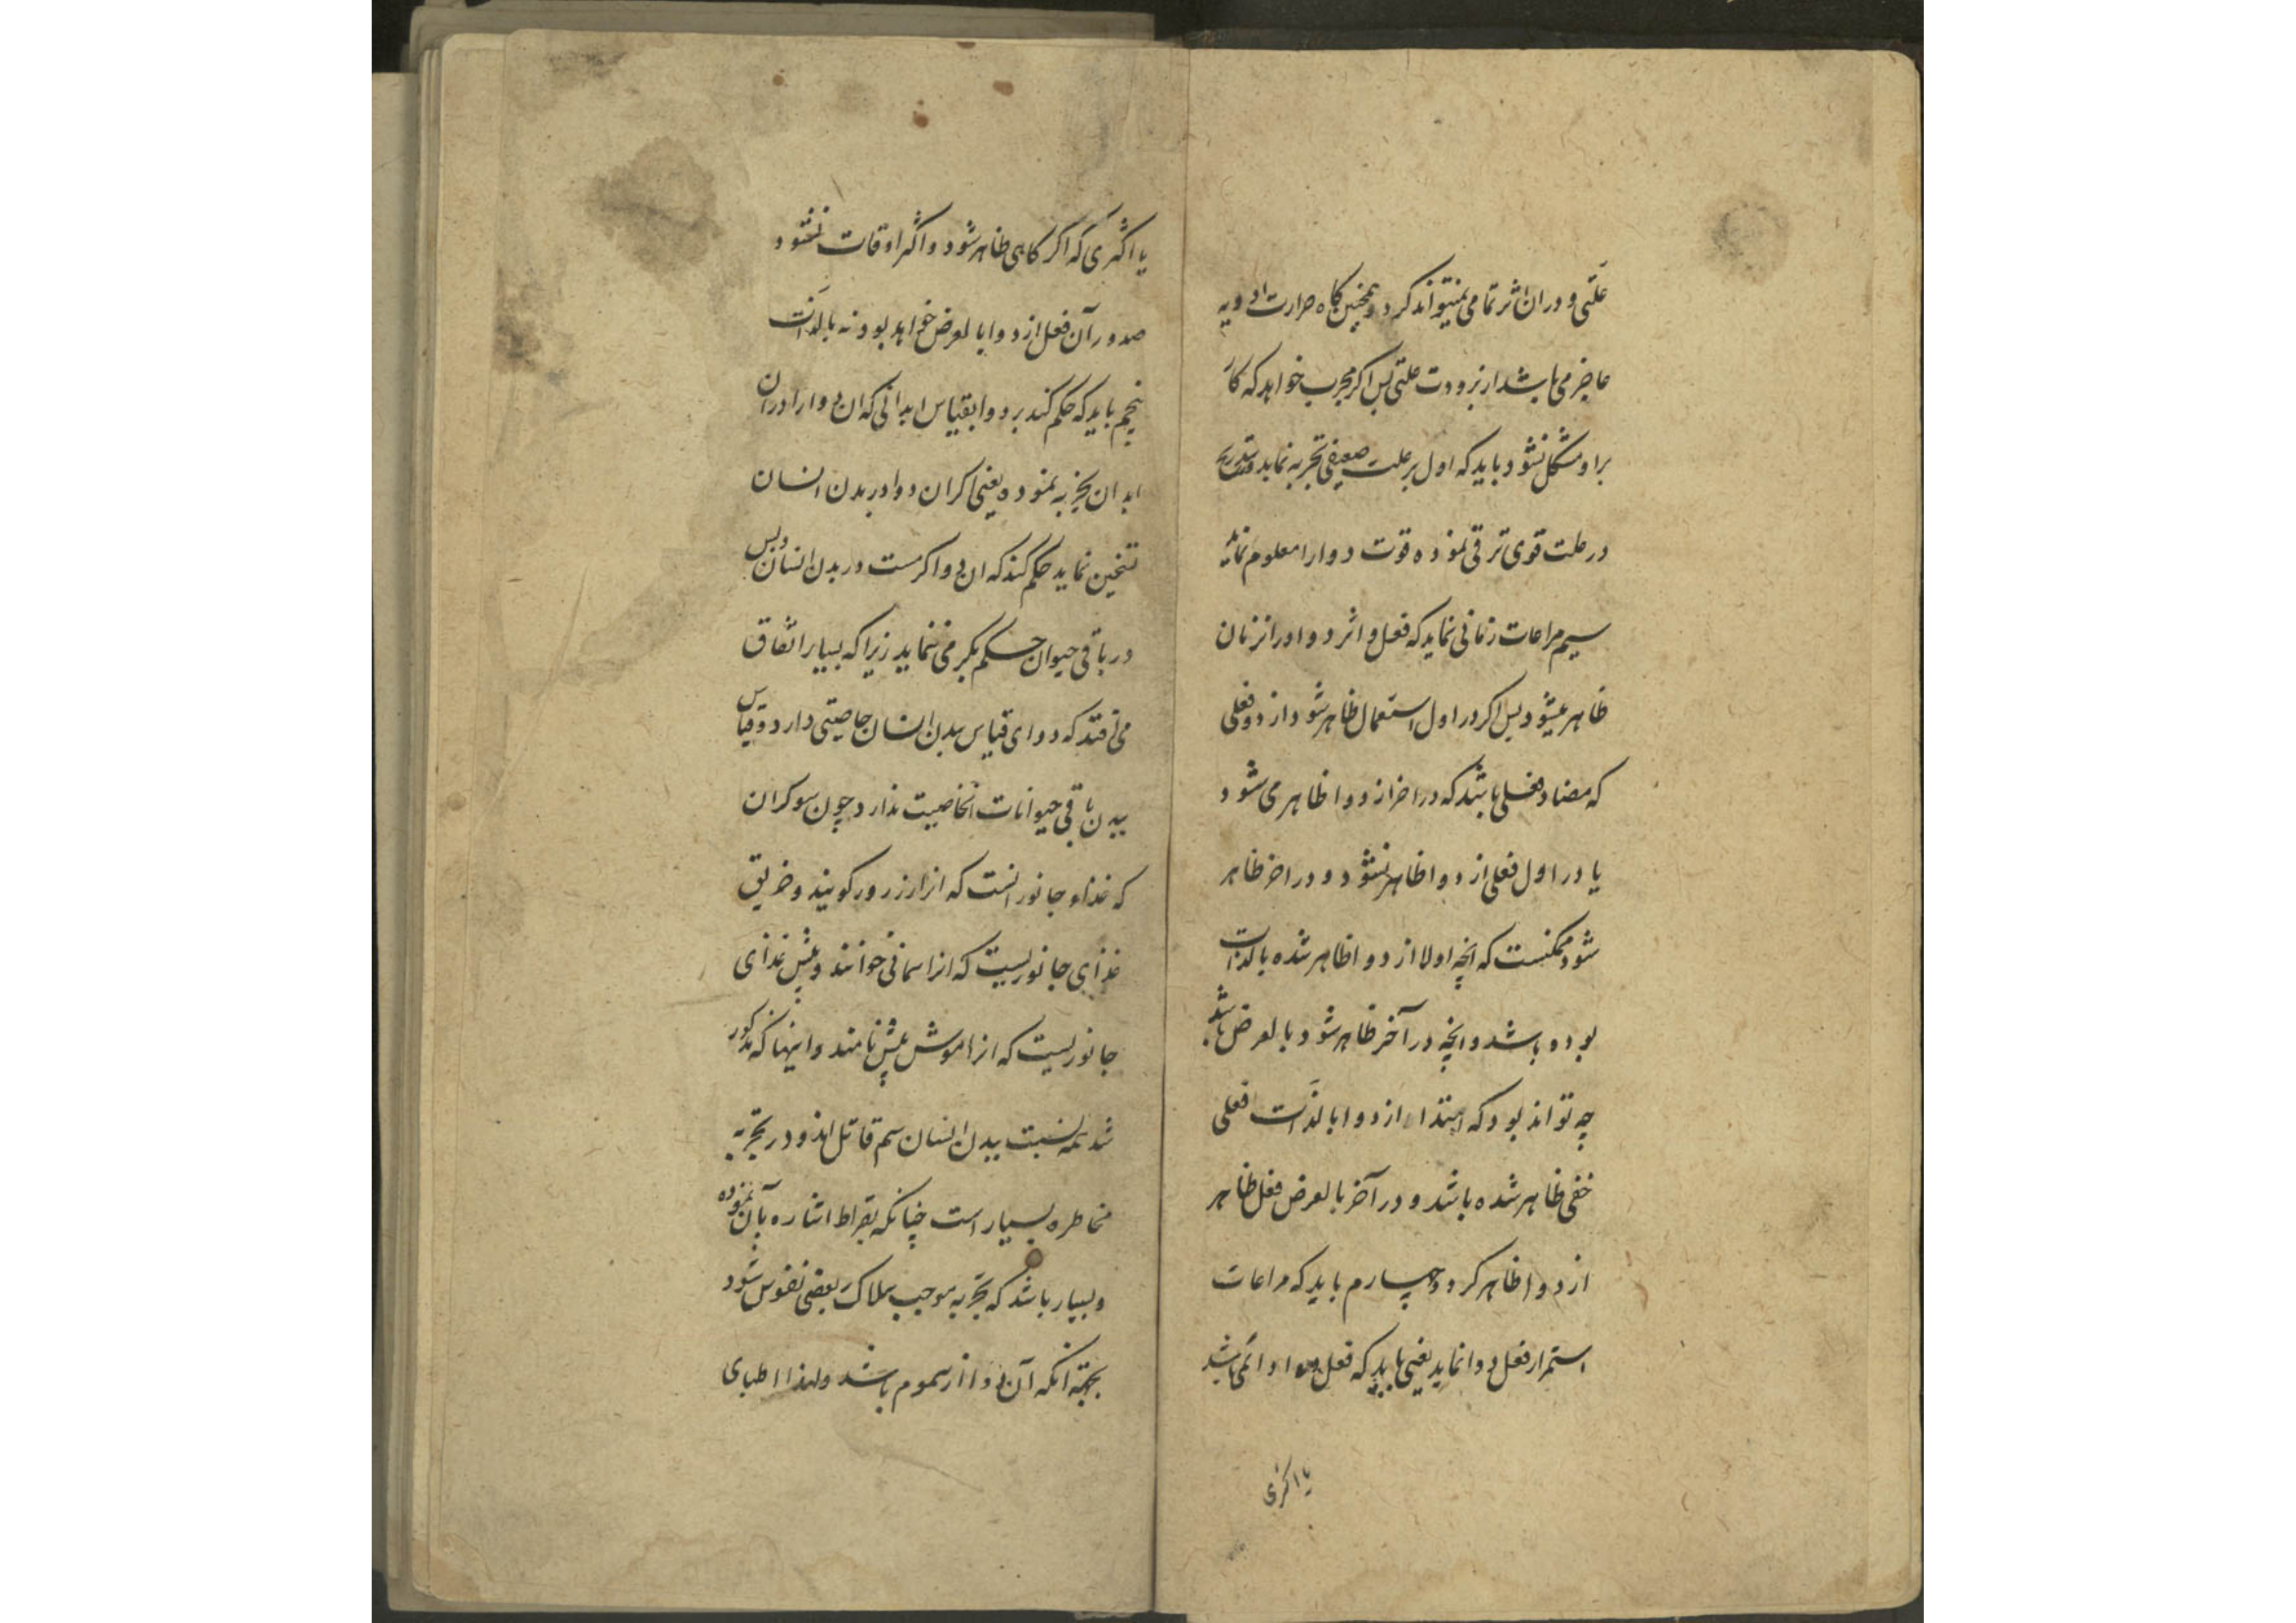 علتی و دران اثر تمامی نمیتواند کرد و همچنین گاه حرارت ادویه
عاجز می باشد از برودت علتی پس اکر مجرب خواهد که کار
براو مشکل نشود باید که اول بر علت ضعیفی تجربه نماید و بتدریج
در علت قوی ترقی نموده قوت دوارا معلوم نماید
سیم مراعات زمانی نماید که فعل و اثر دوا درانزمان
ظاهر میشود پس اکر در اول استعمال ظاهر شود از دوا فعلی
که مضاد فعلی باشد که در اخر از دوا ظاهر می شود
یا در اول فعلی از دوا ظاهر نشود و در اخر ظاهر
شود ممکنست که انچه اولا از دوا ظاهر شده بالذات
بوده باشد و انچه در آخر ظاهر شود بالعرض باشد
چه تواند بود که ابتداء از دوا بالذات فعلی
خفی ظاهر شده باشد و در آخر بالعرض فعل ظاهر
از دوا ظاهر کردد چهارم باید که مراعات
استمرار فعل دوا نماید یعنی باید که فعل دوا دائمی باشد
یا اکثری
یا اکثری که اکر کاهی ظاهر شود و اکثر اوقات نشود
صدور آن فعل از دوا بالعرض خواهد بود نه بالذات
پنجم باید که حکم کند بر دوا بقیاس ابدانی که ان دوا را دران
ابدان تجربه نموده یعنی اکر ان دوا در بدن انسان
تسخین نماید حکم کند که ان دوا کرمست در بدن انسان و بس
در باقی حیوان حکم بکرمی ننماید زیرا که بسیار اتفاق
می افتد که دوای قیاس ببدن انسان خاصیتی دارد و قیاس
ببدن باقی حیوانات انخاصیت ندارد چون سوکران
که غذاء جانورانست که انرا زرزور کویند و خربق
غذای جانوریست که انرا سمانی خوانند و بیش غذای
جانوریست که انرا موش بیش نامند و اینها که مذکور
شد همه نسبت ببدن انسان سم قاتل اند و در تجربه
مخاطره بسیار است چنانکه بقراط اشاره بآن نموده
و بسیار باشد که تجربه موجب هلاک بعضی نفوس شود
بجهة انکه آن دوا از سموم باشد و لهذا اطبای